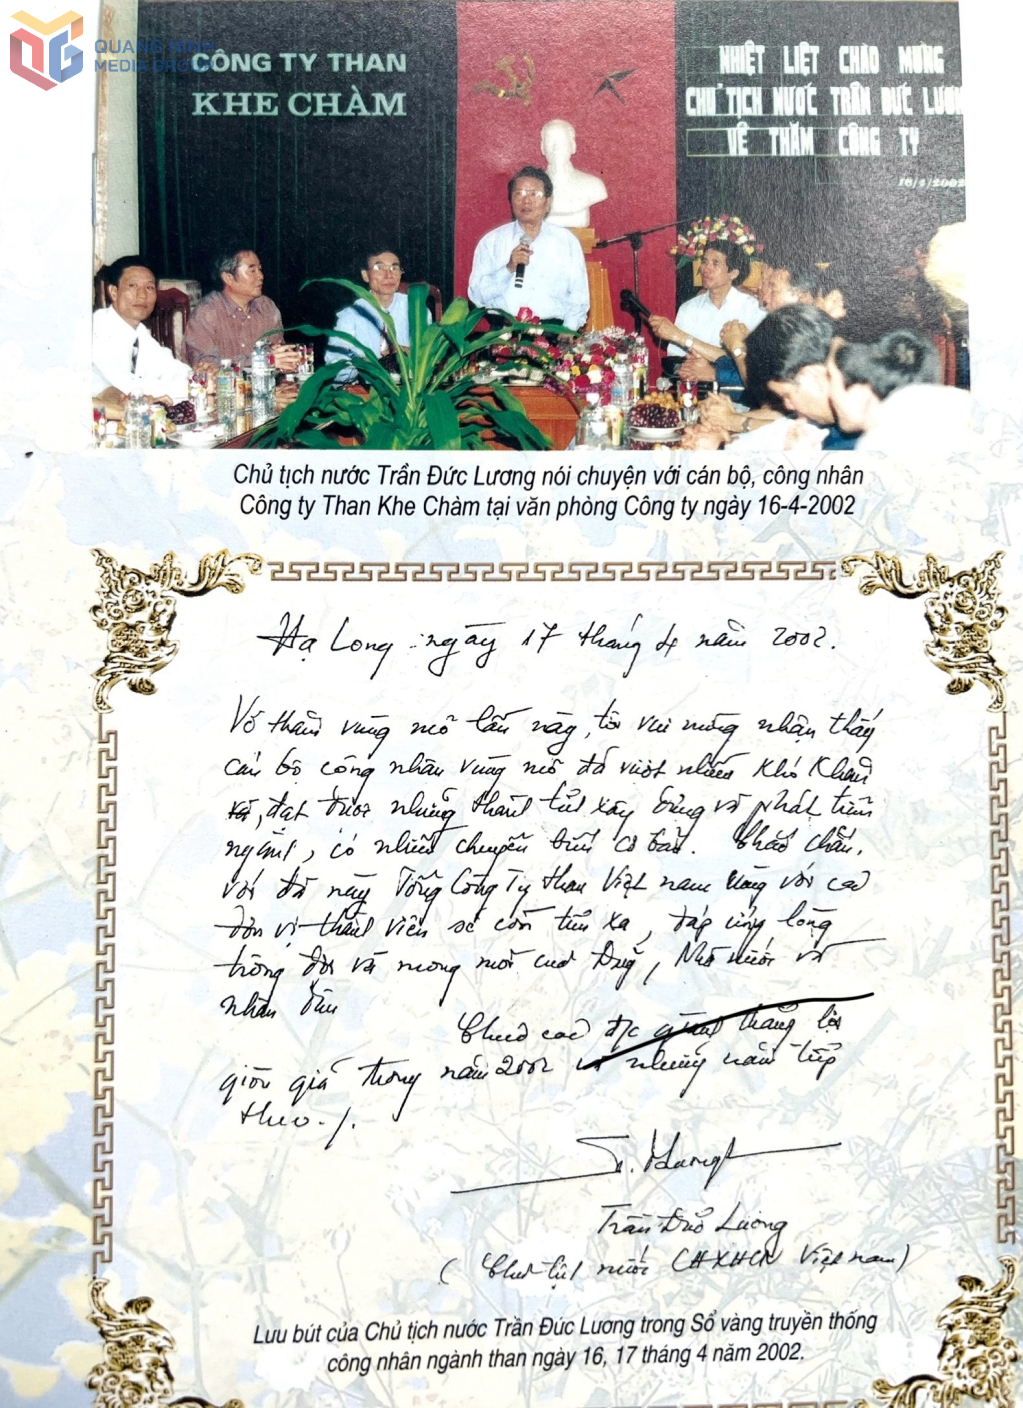 QUANG NINH
MEDIA GROUP
CÔNG TY THAN
KHE CHÀM
NHIỆT LIỆT CHÀO MỪNG
CHỦ TỊCH NƯỚC TRẦN ĐỨC LƯƠN
VỀ THĂM CÔNG TY
16/4/2002
Chủ tịch nước Trần Đức Lương nói chuyện với cán bộ, công nhân
Công ty Than Khe Chàm tại văn phòng Công ty ngày 16-4-2002
Hạ Long ngày 17 tháng 4 năm 2002.
Về thăm vùng mỏ lần này, tôi vui mừng nhận thấy
cán bộ công nhân vùng mỏ đã vượt nhiều khó khăn
đạt được những thành tựu xây dựng và phát triển
ngành, có nhiều chuyển biến cơ bản. Chắc chắn,
với đà này Tổng Công Ty than Việt nam cùng với các
đơn vị thành viên sẽ còn tiến xa, đáp ứng lòng
trông đợi và mong mỏi của Đảng, Nhà nước và
nhân dân
Chúc các đ/c giành thắng lợi
giòn giã trong năm 2002 và những năm tiếp
theo./.
Trần Đức Lương
(Chủ tịch nước CHXHCN Việt nam)
Lưu bút của Chủ tịch nước Trần Đức Lương trong Sổ vàng truyền thống
công nhân ngành than ngày 16, 17 tháng 4 năm 2002.